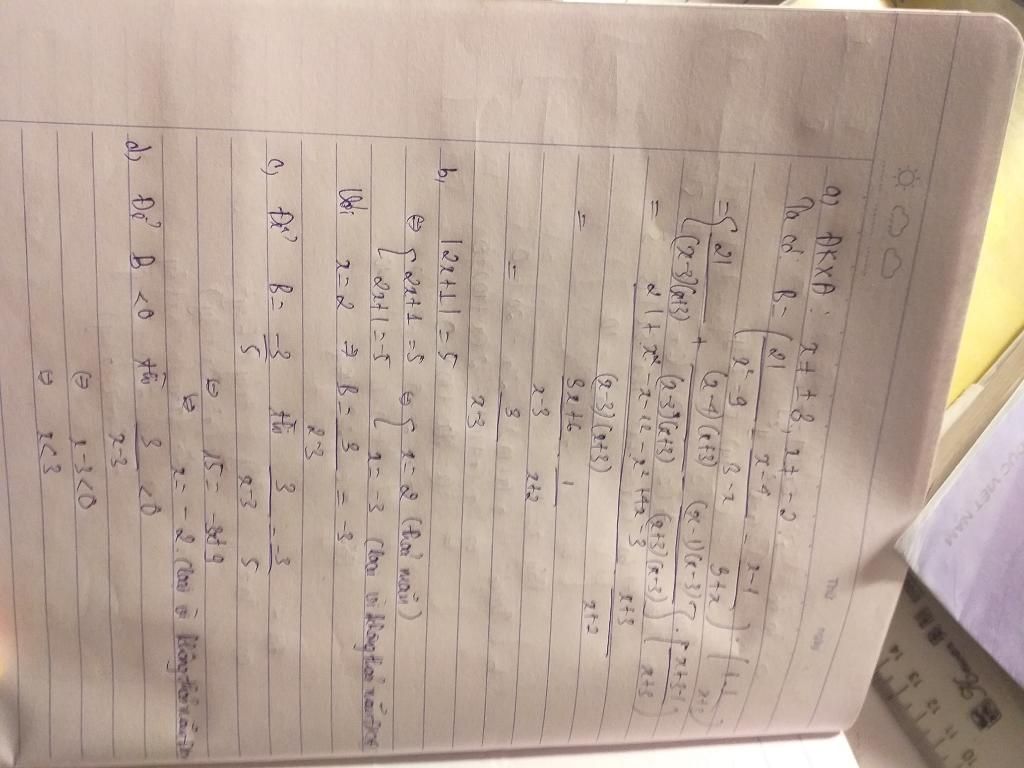 Thứ
a) ĐKXĐ: x ≠ ±3, x ≠ -2
Ta có B = (21/(x²-9) - (x-4)/(3-x) - (x-1)/(3+x)) : (1 - 1/(x+3))
= [21/((x-3)(x+3)) + (x-4)(x+3)/((x-3)(x+3)) - (x-1)(x-3)/((x+3)(x-3))] : ((x+3-1)/(x+3))
= (21 + x² - x - 12 - x² + 4x - 3)/((x-3)(x+3)) . (x+3)/(x+2)
= (3x+6)/(x-3) . 1/(x+2)
= 3/(x-3)
b, |2x+1| = 5
⇔ { 2x+1 = 5 ⇔ { x = 2 (thoả mãn)
{ 2x+1 = -5 { x = -3 (loại vì không thoả mãn ĐKXĐ
Với x = 2 ⇒ B = 3/(2-3) = -3
c, Để B = -3/5 thì 3/(x-3) = -3/5
⇔ 15 = -3x+9
⇔ x = -2. (loại vì không thoả mãn
d) Để B < 0 thì 3/(x-3) < 0
⇔ x-3 < 0
⇔ x < 3
VIET NAM
14
13
12
11
10